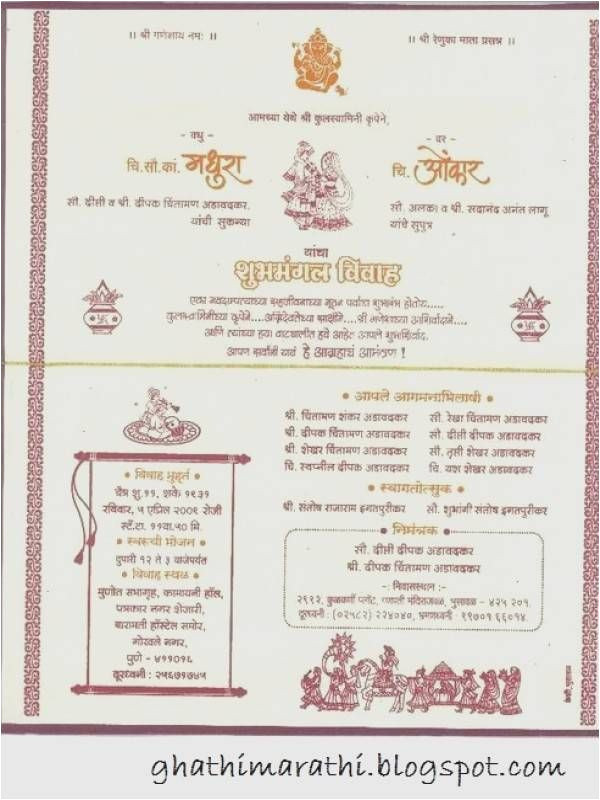 ।। श्री गणेशाय नमः ।।
।। श्री रेणुका माता प्रसन्न ।।
आमच्या येथे श्री कुलस्वामिनी कृपेने,
- वधु -
चि.सौ.कां. मधुरा
सौ. दीप्ती व श्री. दीपक चिंतामण अडावदकर.
यांची सुकन्या
- वर -
चि. ओंकार
सौ. अलका व श्री. सदानंद अनंत लागू
यांचे सुपुत्र
यांचा
शुभमंगल विवाह
एका नवदाम्पत्याच्या सहजीवनाच्या नूतन पर्वाचा शुभारंभ होतोय.....
कुलस्वामिनीच्या कृपेने.....अग्निदेवतेच्या साक्षीने....श्री गजेशाच्या आशिर्वादाने....
आणि त्यांच्या ह्या वाटचालीत हवे आहेत आपले शुभाशिर्वाद.
आपण सर्वांनी यावं हे आग्रहाचं आमंत्रण !
विवाह मुहूर्त
चैत्र शु.११, शके १९३१
रविवार, ५ एप्रिल २००९ रोजी
स्टॅं.टा. ११वा.५० मि.
स्वरूची भोजन
दुपारी १२ ते ३ वाजेपर्यंत
विवाह स्थळ
मुणोत सभागृह, कामायनी हॉल,
पत्रकार नगर शेजारी,
बारामती हॉस्टेल समोर,
गोखले नगर,
पुणे - ४११०१६
दूरध्वनी : २५६७१७४५
आपले आगमनाभिलाषी
श्री. चिंतामण शंकर अडावदकर सौ. रेखा चिंतामण अडावदकर
श्री. दीपक चिंतामण अडावदकर सौ. दीप्ती दीपक अडावदकर
श्री. शेखर चिंतामण अडावदकर सौ. तृप्ती शेखर अडावदकर
चि. स्वप्नील दीपक अडावदकर चि. यश शेखर अडावदकर
स्वागतोत्सुक
श्री. संतोष राजाराम इगतपुरीकर सौ. शुभांगी संतोष इगतपुरीकर
निमंत्रक
सौ. दीप्ती दीपक अडावदकर
श्री. दीपक चिंतामण अडावदकर
-: निवासस्थान :-
२९१२, कुळकर्णी प्लॉट, गणपती मंदिराजवळ, भुसावळ - ४२५ २०१.
दूरध्वनी : (०२५८२) २२४०४०, भ्रमणध्वनी : ९९७०१ ६६०१४.
ghathimarathi.blogspot.com